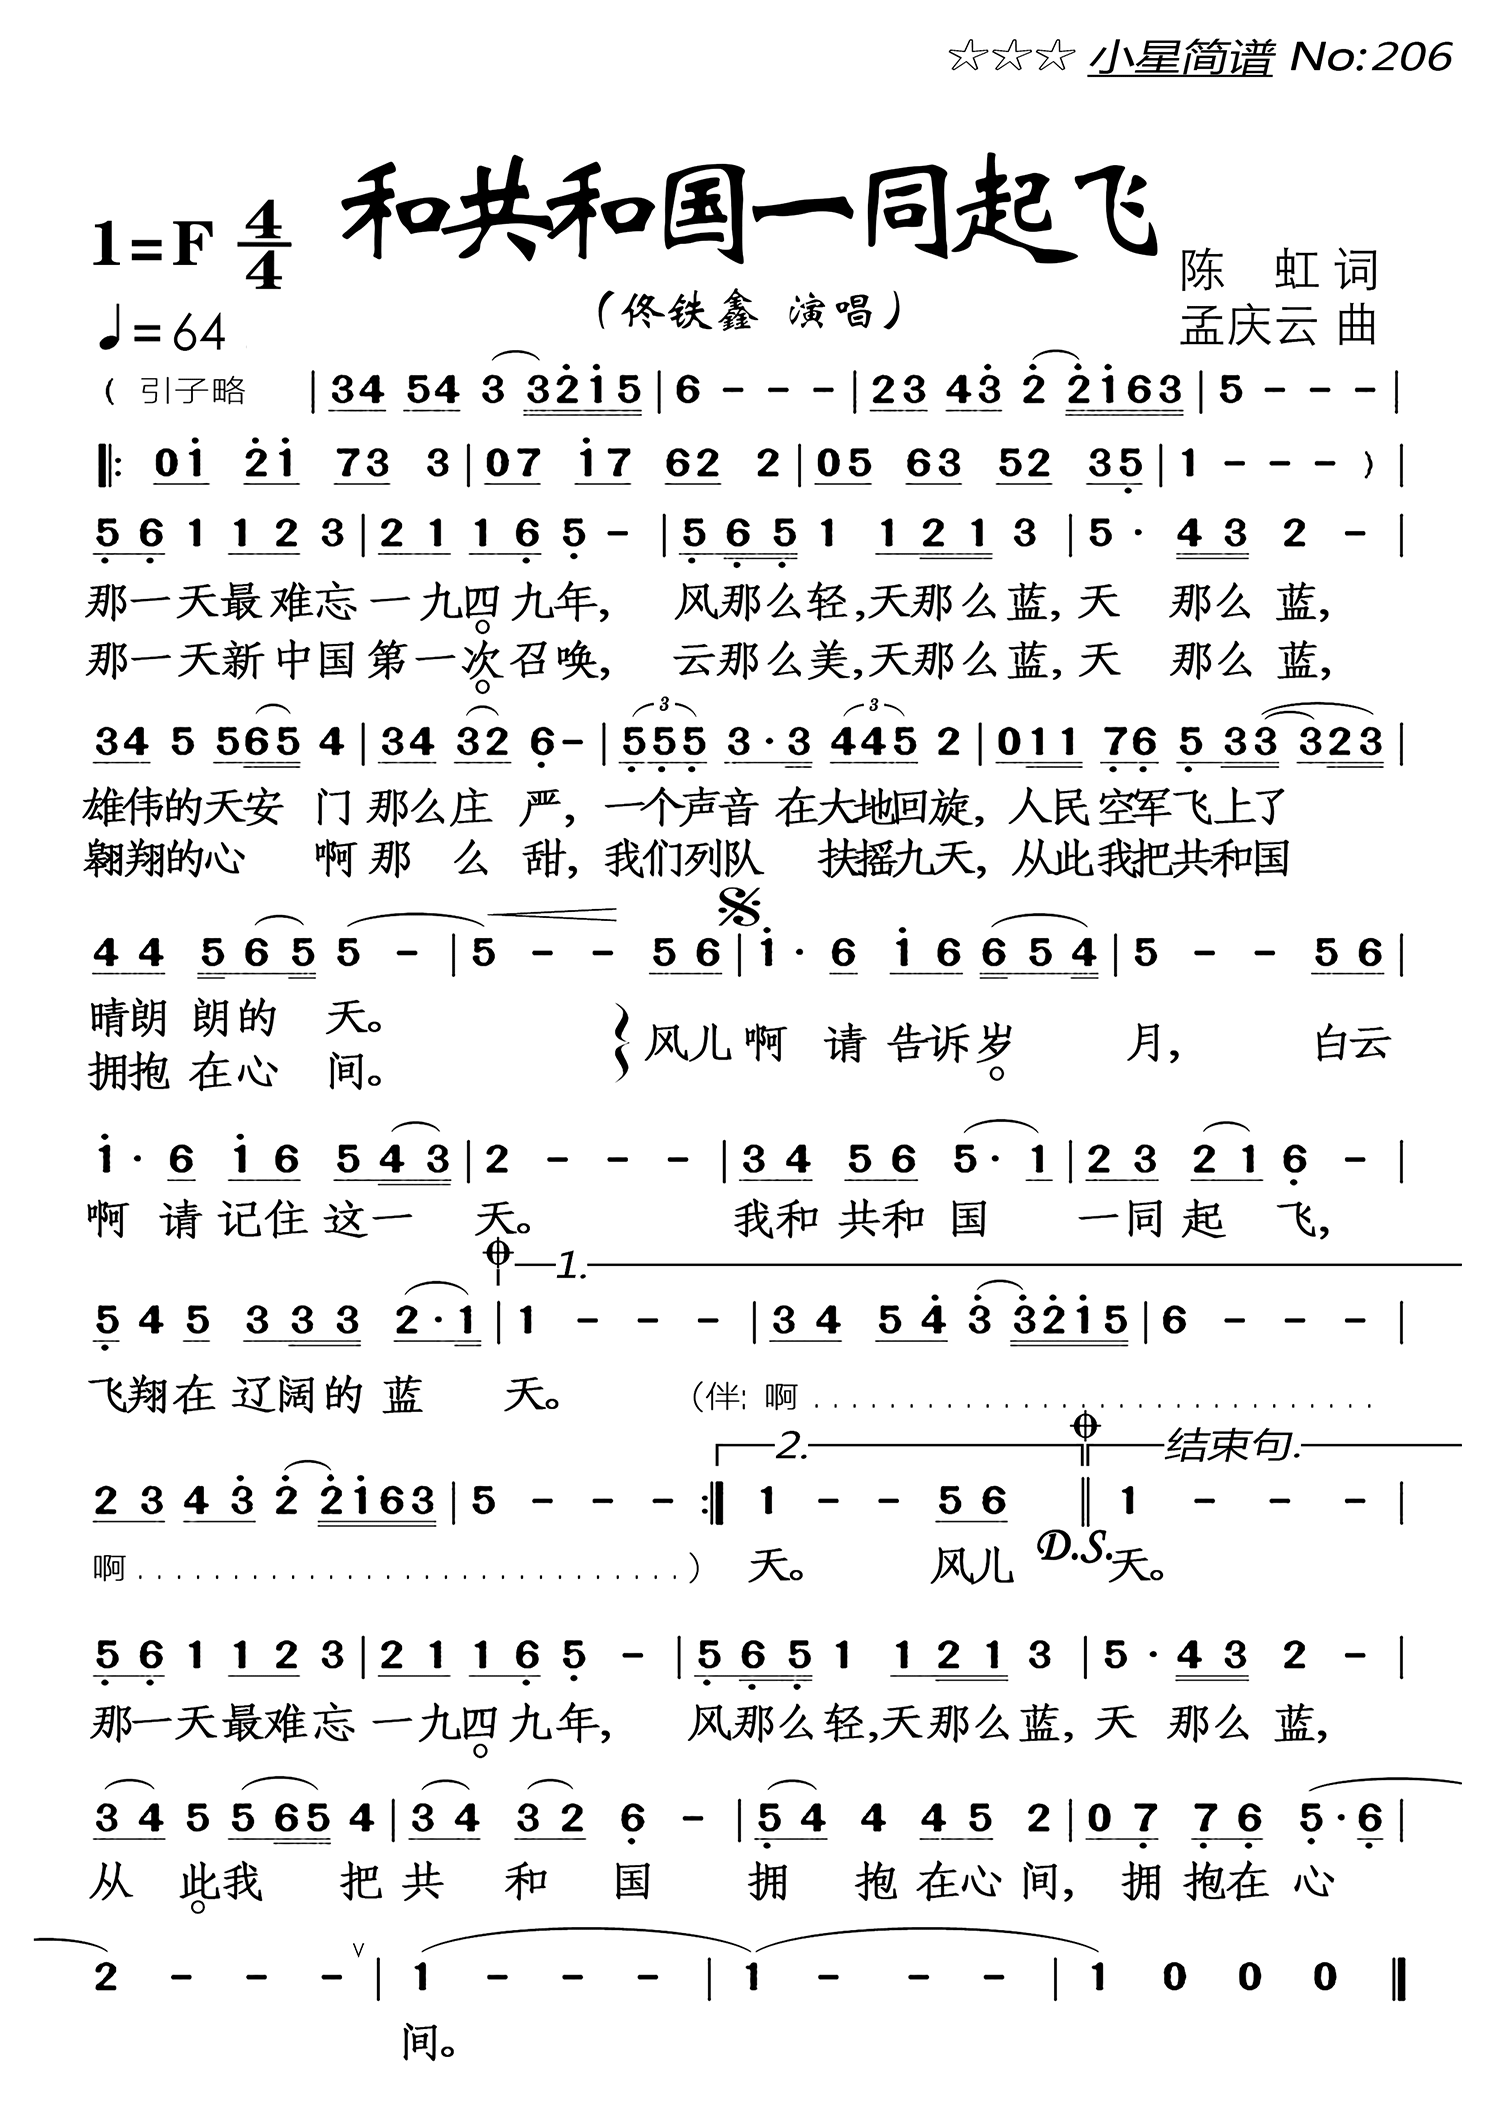 ☆☆☆ 小星简谱 No:206
和共和国一同起飞
1=F 4/4
陈 虹 词
♩=64
（佟铁鑫 演唱）
孟庆云 曲
( 引子略 | 34 54 3 32i5 | 6 - - - | 23 43 2 2i63 | 5 - - - |
‖: 0i 2i 73 3 | 07 i7 62 2 | 05 63 52 35 | 1 - - - ) |
5 6 1 1 2 3 | 2 1 1 6 5 - | 5 6 5 1 1 2 1 3 | 5 · 4 3 2 - |
那一天最难忘一九四九年, 风那么轻,天那么蓝,天 那么 蓝,
那一天新中国第一次召唤, 云那么美,天那么蓝,天 那么 蓝,
34 5 565 4 | 34 32 6 - | 555 3·3 445 2 | 011 76 5 33 323 |
3 3
雄伟的天安 门 那么庄 严, 一个声音 在大地回旋, 人民空军飞上了
翱翔的心 啊 那 么 甜, 我们列队 扶摇九天, 从此我把共和国
4 4 5 6 5 5 - | 5 - - 5 6 | i · 6 i 6 6 5 4 | 5 - - 5 6 |
晴朗 朗的 天。
风儿 啊 请 告诉岁 月, 白云
拥抱 在心 间。
i · 6 i 6 5 4 3 | 2 - - - | 3 4 5 6 5· 1 | 2 3 2 1 6 - |
啊 请 记住 这一 天。 我和 共和 国 一同 起 飞,
1.
5 4 5 3 3 3 2 · 1 | 1 - - - | 3 4 5 4 3 32i5 | 6 - - - |
飞翔在 辽阔的 蓝 天。 (伴: 啊 ..............................
2. 结束句.
2 3 4 3 2 2i63 | 5 - - - :‖ 1 - - 5 6 ‖ 1 - - - |
啊 ............................. ) 天。 风儿 D.S. 天。
5 6 1 1 2 3 | 2 1 1 6 5 - | 5 6 5 1 1 2 1 3 | 5 · 4 3 2 - |
那一天最难忘 一九四九年, 风那么轻,天那么蓝, 天 那么 蓝,
3 4 5 5 6 5 4 | 3 4 3 2 6 - | 5 4 4 4 5 2 | 0 7 7 6 5 · 6 |
从 此我 把 共 和 国 拥 抱 在心 间, 拥 抱在 心
2 - - - ∨ | 1 - - - | 1 - - - | 1 0 0 0 ‖
间。